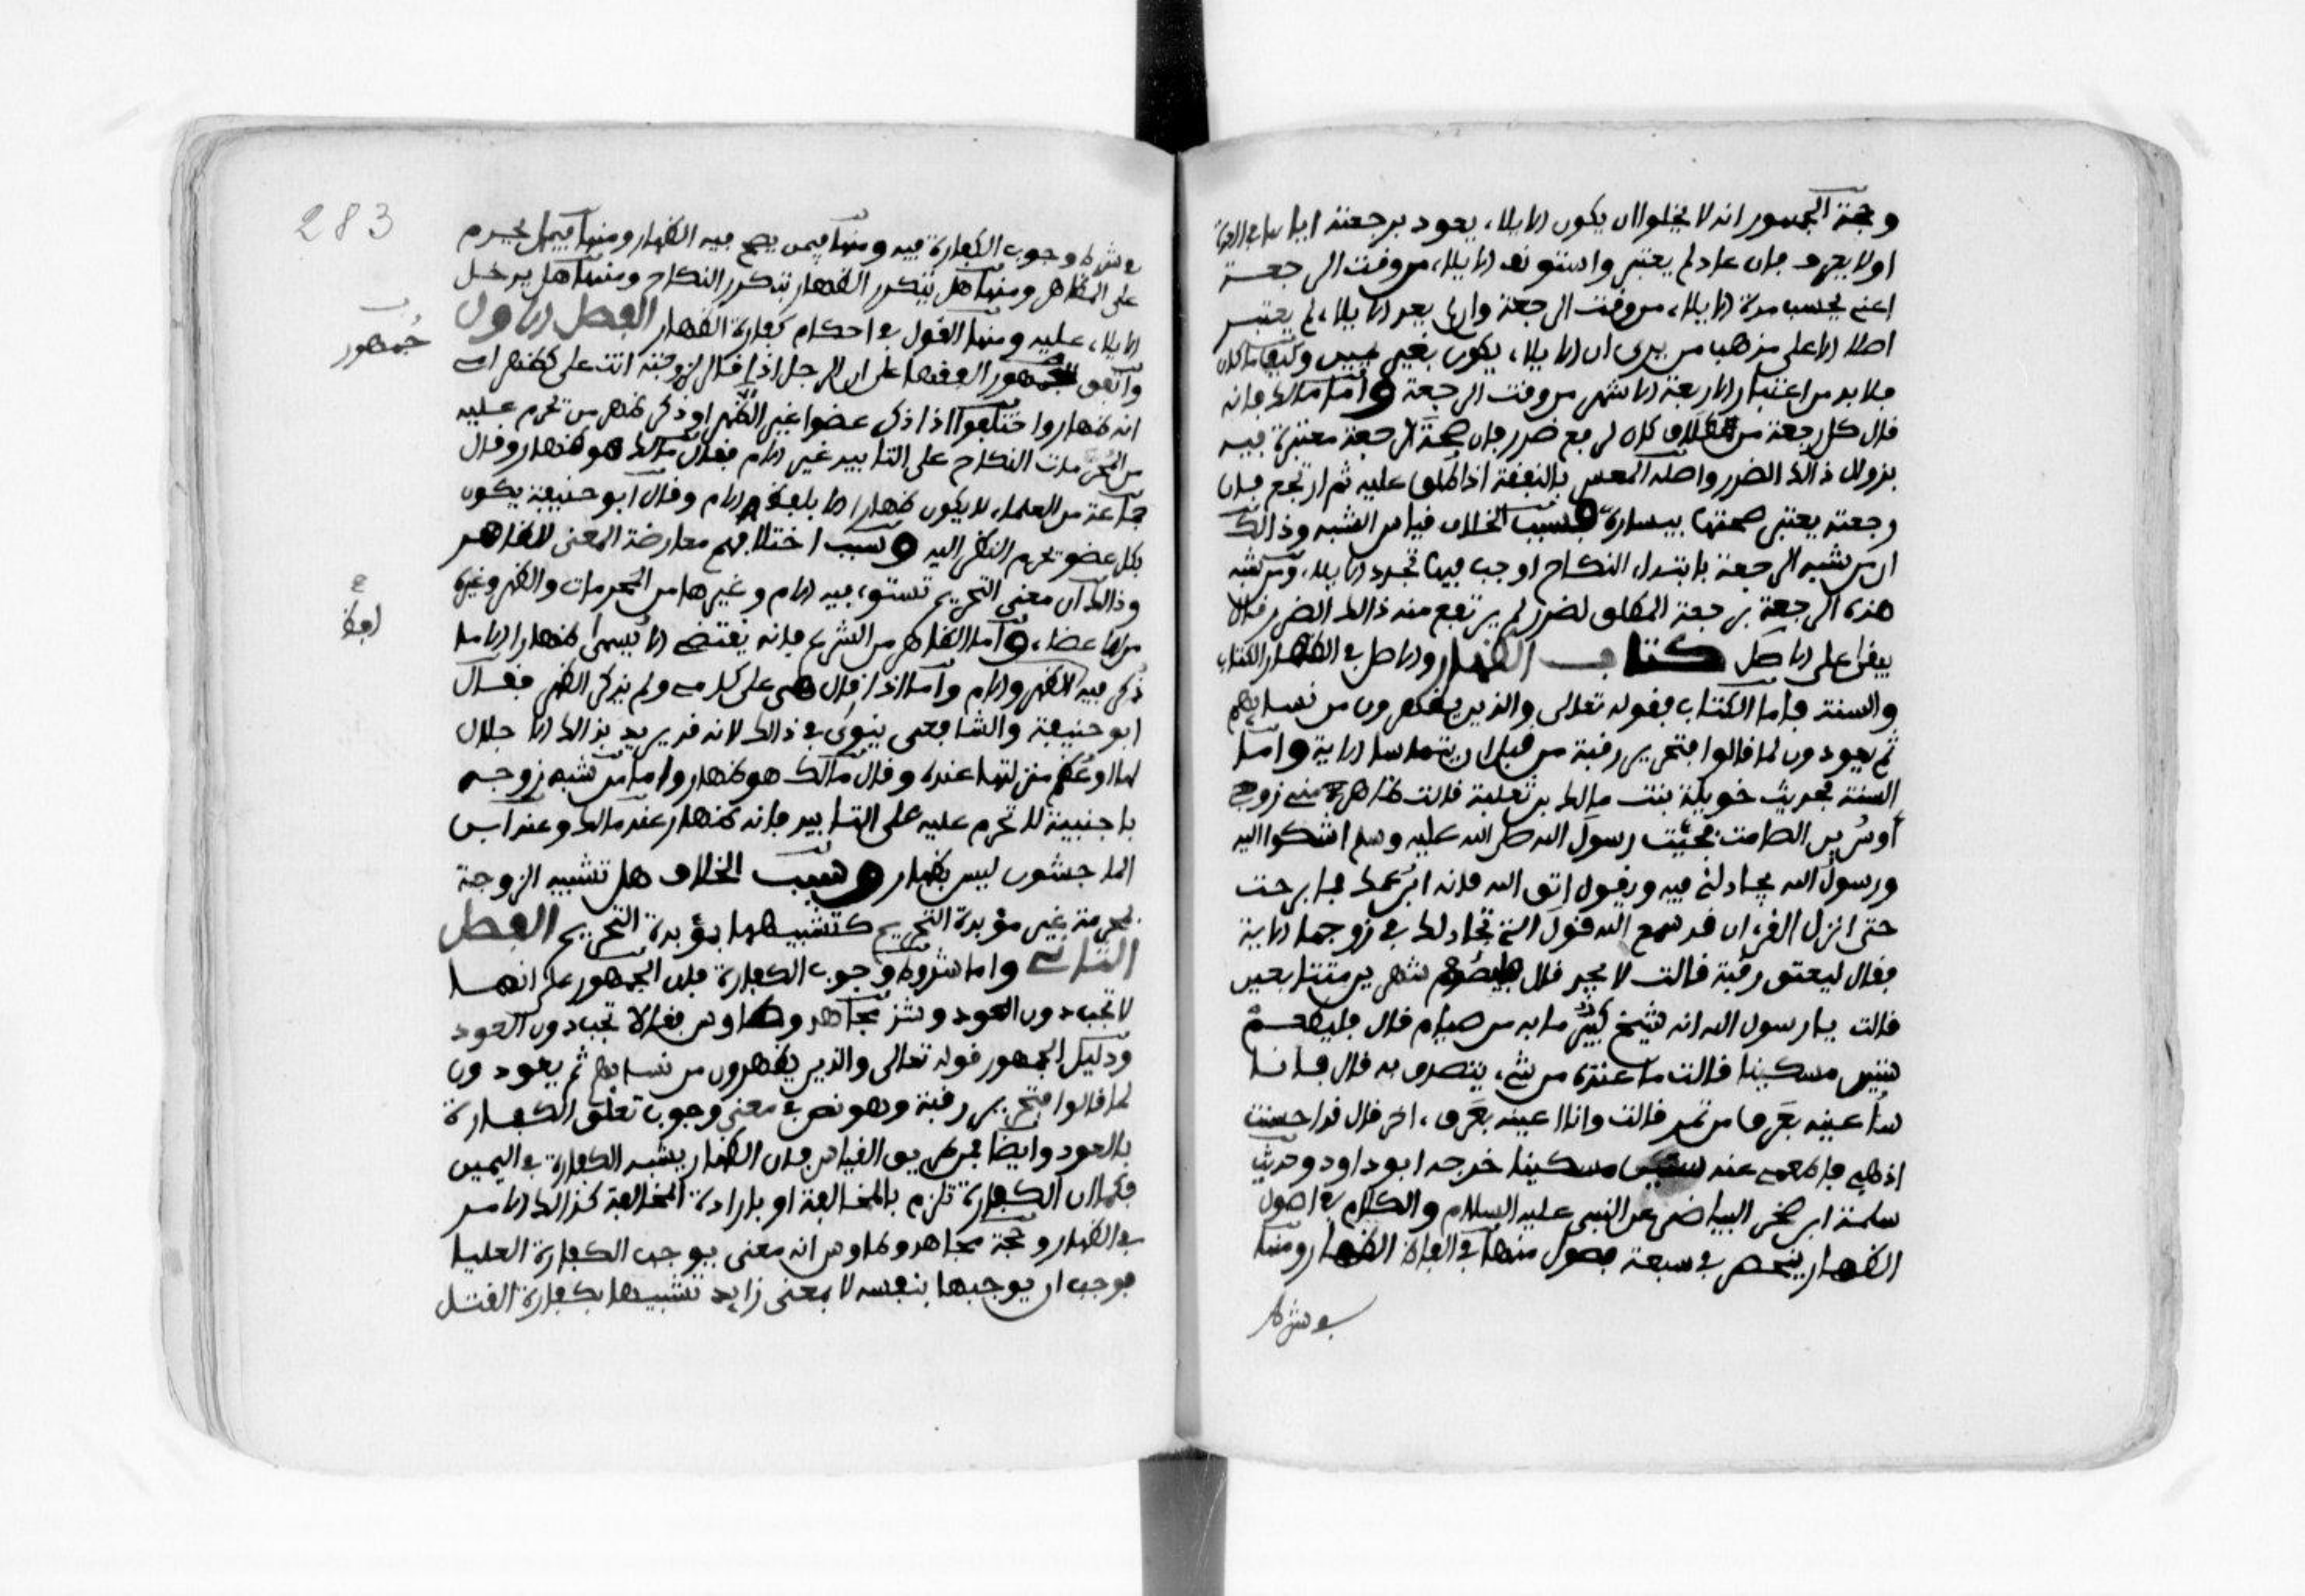 وحجة الجمهور انه لا يخلوا ان يكون الايلاء يعود برجعته
اولا يعود فان عاد لم يعتبر واستونف الايلاء من وقت الرجعة
اعني يحسب مدة الايلاء من وقت الرجعة وان لم يعد الايلاء لم يعتبر
اصلا الا على مذهب من يرى ان الايلاء يكون بغير يمين وكيفما كان
فلا بد من اعتبار الاربعة الاشهر من وقت الرجعة واما مالك فانه
قال كل رجعة من طلاق كان لرفع ضرر فان صحة الرجعة معتبرة فيه
بزوال ذالك الضرر واصله المعسر بالنفقة اذا طلق عليه ثم ارتجع فان
رجعته يعتبر صحتها بيساره فسبب الخلاف قياس الشبه وذالك
ان من شبه الرجعة بابتداء النكاح اوجب فيها تجدد الايلاء ومن شبه
هذه الرجعة برجعة المطلق لضرر لم يرتفع منه ذالك الضرر قال
يبقى على الاصل كتاب الظهار والاصل في الظهار الكتاب
والسنة فاما الكتاب فقوله تعالى والذين يظهرون من نسايهم
ثم يعودون لما قالوا فتحرير رقبة من قبل ان يتماسا الاية واما
السنة فحديث خويلة بنت مالك بن ثعلبة قالت ظاهر مني زوجي
أوسُ بن الصامت فجيت رسول الله صلى الله عليه وسلم اشكوا اليه
ورسول الله يجادلني فيه ويقول اتق الله فانه ابن عمك فما برحت
حتى انزل القرءان قد سمع الله قول التي تجادلك في زوجها الاية
فقال ليعتق رقبة قالت لا يجد قال فليصُم شهرين متتابعين
قالت يا رسول الله انه شيخ كبير ما به من صيام قال فليطعم
ستين مسكينا قالت ما عنده من شيء يتصدق به قال فانا
سأعينه بعَرق من تمر قالت وانا اعينه بعَرق ءاخر قال قد احسنت
اذهبي فاطعمي عنه ستين مسكينا خرجه ابو داود وحديث
سلمة ابن صخر البياضي عن النبي عليه السلام والكلام في اصول
الظهار ينحصر في سبعة فصول منها في الفاظ الظهار ومنها
في شرط
283
في شرط وجوب الكفارة فيه ومنها فيمن يصح فيه الظهار ومنها فيما يحرم
على المظاهر ومنها هل يتكرر الظهار بتكرر النكاح ومنها هل يدخل
الايلاء عليه ومنها القول في احكام كفارة الظهار الفصل الاول
جُمهور
واتفق الفقها على ان الرجل اذا قال لزوجته انت علي كظهر امي
انه ظهار واختلفوا اذا ذكر عضوا غير الظهر او ذكر ظهر من تحرم عليه
من المُحرمات النكاح على التابيد غير الام فقال مالك هو ظهار وقال
جماعة من العلماء لا يكون ظهارا الا بلفظ الام وقال ابو حنيفة يكون
بكل عضو تحرم النظر اليه وسبب اختلافهم معارضة المعنى للظاهر
وذالك ان معنى التحريم تستوي فيه الام وغيرها من المحرمات والظهر وغيره
من الاعضاء واما الظاهر من الشرع فانه يقتضي الا يسمى ظهارا الا ما
ذُكر فيه الظهر والام واما اذا قال هي علي كامي ولم يذكر الظهر فقال
ابو حنيفة والشافعي ينوى في ذالك لانه قد يريد بذالك الاجلال
لها او عُظم منزلتها عنده وقال مالك هو ظهار واما من شبه زوجه
باجنبية لا تحرم عليه على التابيد فانه ظهار عند مالك وعند ابن
الماجشون ليس بظهار وسبب الخلاف هل تشبيه الزوجة
بمحرمة غير مؤبدة التحريم كتشبيهها بمؤبدة التحريم الفصل
الثاني واما شروط وجوب الكفارة فان الجمهور على انها
لا تجب دون العود وشذ مجاهد وطاوس فقالا تجب دون العود
ودليل الجمهور قوله تعالى والذين يظهرون من نسايهم ثم يعودون
لما قالوا فتحرير رقبة وهو نص في معنى وجوب تعلق الكفارة
بالعود وايضا فمن طريق القياس فان الظهار يشبه الكفارة في اليمين
فكما ان الكفارة تلزم بالمخالفة او بارادة المخالفة كذالك الامر
في الظهار وحجة مجاهد وطاوس انه معنى يوجب الكفارة العليا
فوجب ان يوجبها بنفسه لا بمعنى زايد تشبيها بكفارة القتل